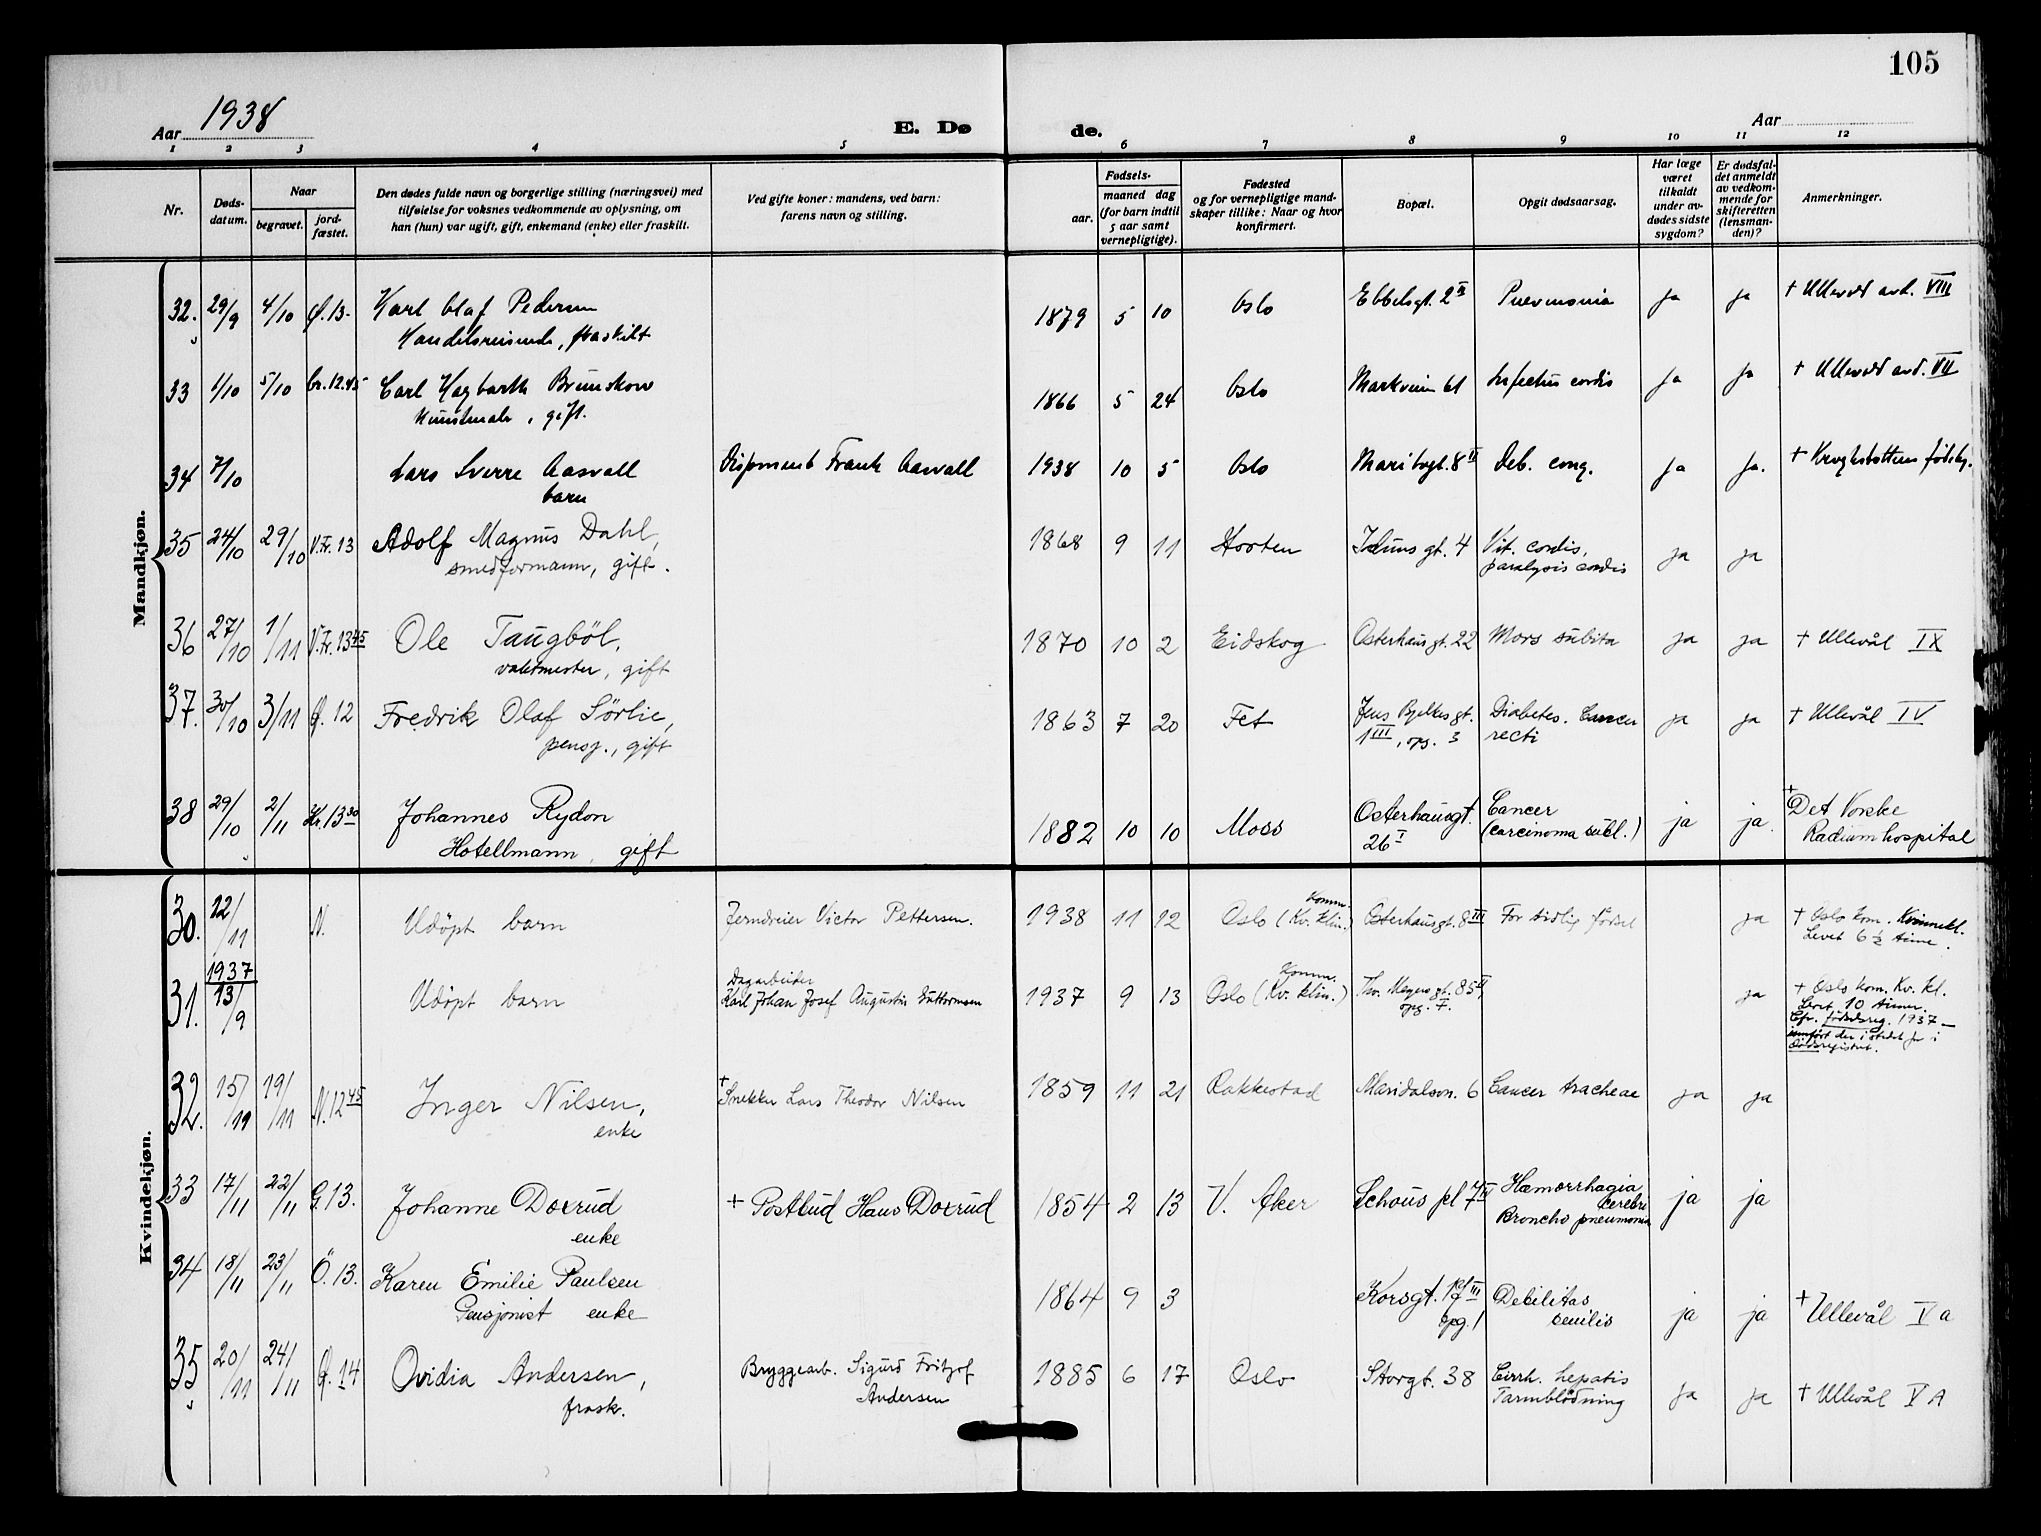 105
Aar 1938
E. Dø de.
Aar
1 2 3 4 5 6 7 8 9 10 11 12
Nr.
Døds-
datum.
Naar
begravet.
jord-
fæstet.
Den dødes fulde navn og borgerlige stilling (næringsvei) med
tilføielse for voksnes vedkommende av oplysning, om
han (hun) var ugift, gift, enkemand (enke) eller fraskilt.
Ved gifte koner: mandens, ved barn:
farens navn og stilling.
Fødsels-
aar.
maaned dag
(for barn indtil
5 aar samt
vernepligtige).
Fødested
og for vernepligtige mand-
skaper tillike: Naar og hvor
konfirmert.
Bopæl.
Opgit dødsaarsag.
Har læge
været
tilkaldt
under av-
dødes sidste
sygdom?
Er dødsfal-
det anmeldt
av vedkom-
mende for
skifteretten
(lensman-
den)?
Anmerkninger.
Mandkjøn.
32. 29/9 4/10 Ø. 13. Karl Olaf Pedersen 1879 5 10 Oslo Ebbelsgt. 2 II Pneumonia ja ja + Ullevål avd. VIII
Handelsreisende, fraskilt
33 1/10 5/10 12.45 Carl Hagbarth Brunskow 1866 5 24 Oslo Markveien 61 cordis ja ja + Ullevål avd. VII
Kunstmaler, gift.
34 7/10 Lars Sverre Aasvall Disponent Frank Aasvall 1938 10 5 Oslo Maribogt. 8 II Deb. cong. ja ja. + Kroghstøtten fødehj.
barn
35 24/10 29/10 V.Fr. 13 Adolf Magnus Dahl, 1868 9 11 Horten Iduns gt. 4 Vit. cordis, ja ja
smedformann, gift. paralysis cordis
36 27/10 1/11 V.Fr. 13 45 Ole Taugbøl, 1870 10 2 Eidskog Osterhaus gt. 22 Mors subita ja ja + Ullevål IX
vaktmester, gift
37. 30/10 3/11 Ø. 12 Fredrik Olaf Sörlie, 1863 7 20 Fet Jens Bjelkes gt. Diabetes. Cancer ja ja + Ullevål IV
pensj., gift 1 III, opg. 3 recti
38 29/10 2/11 Kr. 13 30 Johannes Rydon 1882 10 10 Moss Osterhausgt. Cancer ja ja. + Det Norske
Hotellmann, gift 26 I (carcinoma subl.) Radiumhospital
Kvindekjøn.
30. 12/11 N. Udöpt barn Jerndreier Victor Pettersen. 1938 11 12 Oslo (Komm. Kv. klin.) Osterhausgt. 8 III For tidlig födsel ja + Oslo kom. Kvinnekl.
Levet 6 ½ time.
1937
31. 13/9 Udöpt barn Dagarbeider 1937 9 13 Oslo (Komm. Kv. klin.) Thv. Meyers gt. 85 II ja + Oslo kom. Kv. kl.
Karl Johan Josef Augustin Guttormsen opg. I. Levet 10 timer.
Cfr. födselsreg. 1937 –
innført der i stedet for i
Dödsregistret.
32. 15/11 19/11 N. 12 45 Inger Nilsen, + Snekker Lars Theodor Nilsen 1859 11 21 Rakkestad Maridalsvn. 6 Cancer tracheae ja ja
enke
33 17/11 22/11 G. 13. Johanne Doxrud + Postbud Hans Doxrud 1854 2 13 V. Aker Schous pl 7 III Hæmorrhagia ja ja
enke cerebri
Broncho pneumonia
34 18/11 23/11 Ö. 13. Karen Emilie Paulsen 1864 9 3 Korsgt. 17 III Debilitas ja ja + Ullevål V a
Pensjonist enke opg. 1 senilis
35 20/11 24/11 Ø. 14 Ovidia Andersen, Bryggearb. Sigurd Fritjof 1885 6 17 Oslo Storgt. 38 Cirrh. hepatis ja ja + Ullevål V A
frask. Andersen Tarmblødning